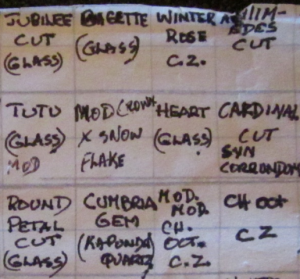 JUBILEE
CUT
(GLASS)
BAGETTE
(GLASS)
WINTER
ROSE
C.Z.
CUT
TUTU
(GLASS)
MOD
MOD CROWN
X SNOW
FLAKE
HEART
(GLASS)
CARDINAL
CUT
SYN
CORRONDOM
ROUND
PETAL
CUT
(GLASS)
CUMBRIA
GEM
QUARTZ)
MOD.
MOR
CH.
OCT.
C.Z.
CH OCT
CZ